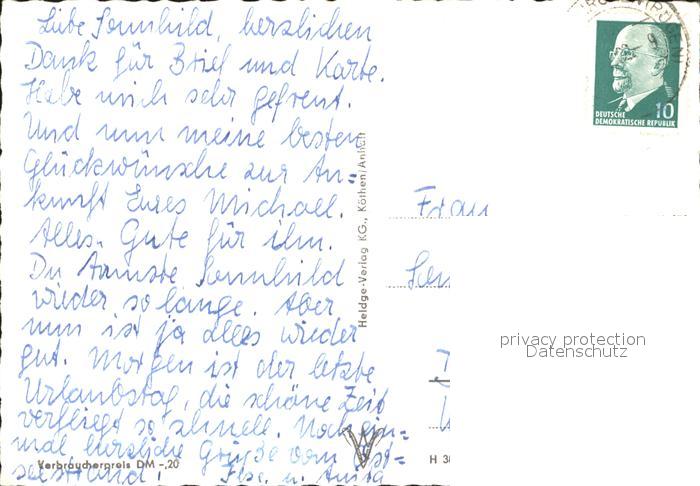 Liebe Sonnhild, herzlichen
Dank für Brief und Karte.
Habe mich sehr gefreut.
Und nun meine besten
Glückwünsche zur An=
kunft Eures Michael.
Alles Gute für ihn.
Du Ärmste Sonnhild
wieder so lange. Aber
nun ist ja alles wieder
gut. Morgen ist der letzte
Urlaubstag, die schöne Zeit
verfliegt so schnell. Noch ein=
mal herzliche Grüße vom Ost=
seestrand! u. Anita
Verbraucherpreis DM -,20
Heldge-Verlag KG., Köthen/Anhalt
DEUTSCHE
DEMOKRATISCHE REPUBLIK
10
Frau
privacy protection
Datenschutz